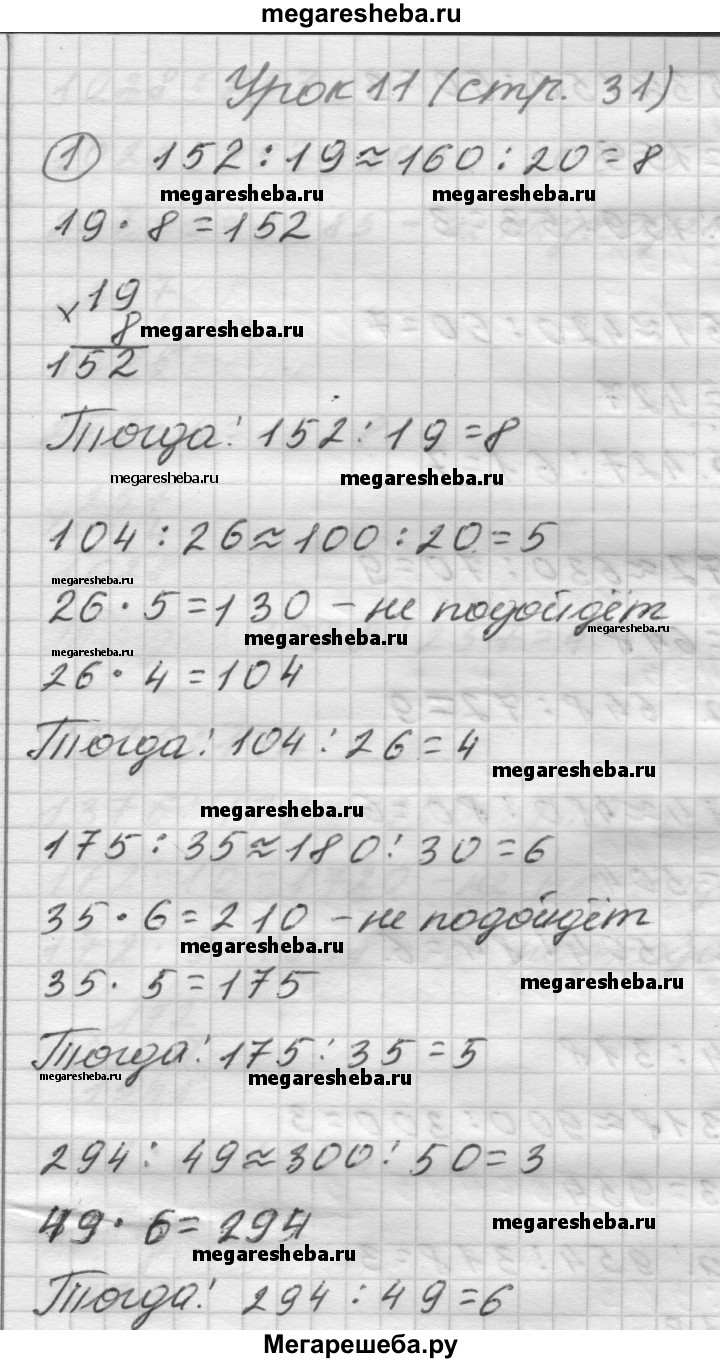 megaresheba.ru
Урок 11 (стр. 31)
① 152 : 19 ≈ 160 : 20 = 8
megaresheba.ru megaresheba.ru
19 · 8 = 152
× 19
8 megaresheba.ru
152
Тогда: 152 : 19 = 8
megaresheba.ru megaresheba.ru
104 : 26 ≈ 100 : 20 = 5
megaresheba.ru
26 · 5 = 130 – не подойдёт
megaresheba.ru megaresheba.ru
megaresheba.ru
26 · 4 = 104
Тогда: 104 : 26 = 4
megaresheba.ru
megaresheba.ru
175 : 35 ≈ 180 : 30 = 6
35 · 6 = 210 – не подойдёт
megaresheba.ru
35 · 5 = 175
megaresheba.ru
Тогда: 175 : 35 = 5
megaresheba.ru megaresheba.ru
294 : 49 ≈ 300 : 50 = 3
49 · 6 = 294
megaresheba.ru
megaresheba.ru
Тогда: 294 : 49 = 6
Мегарешеба.ру